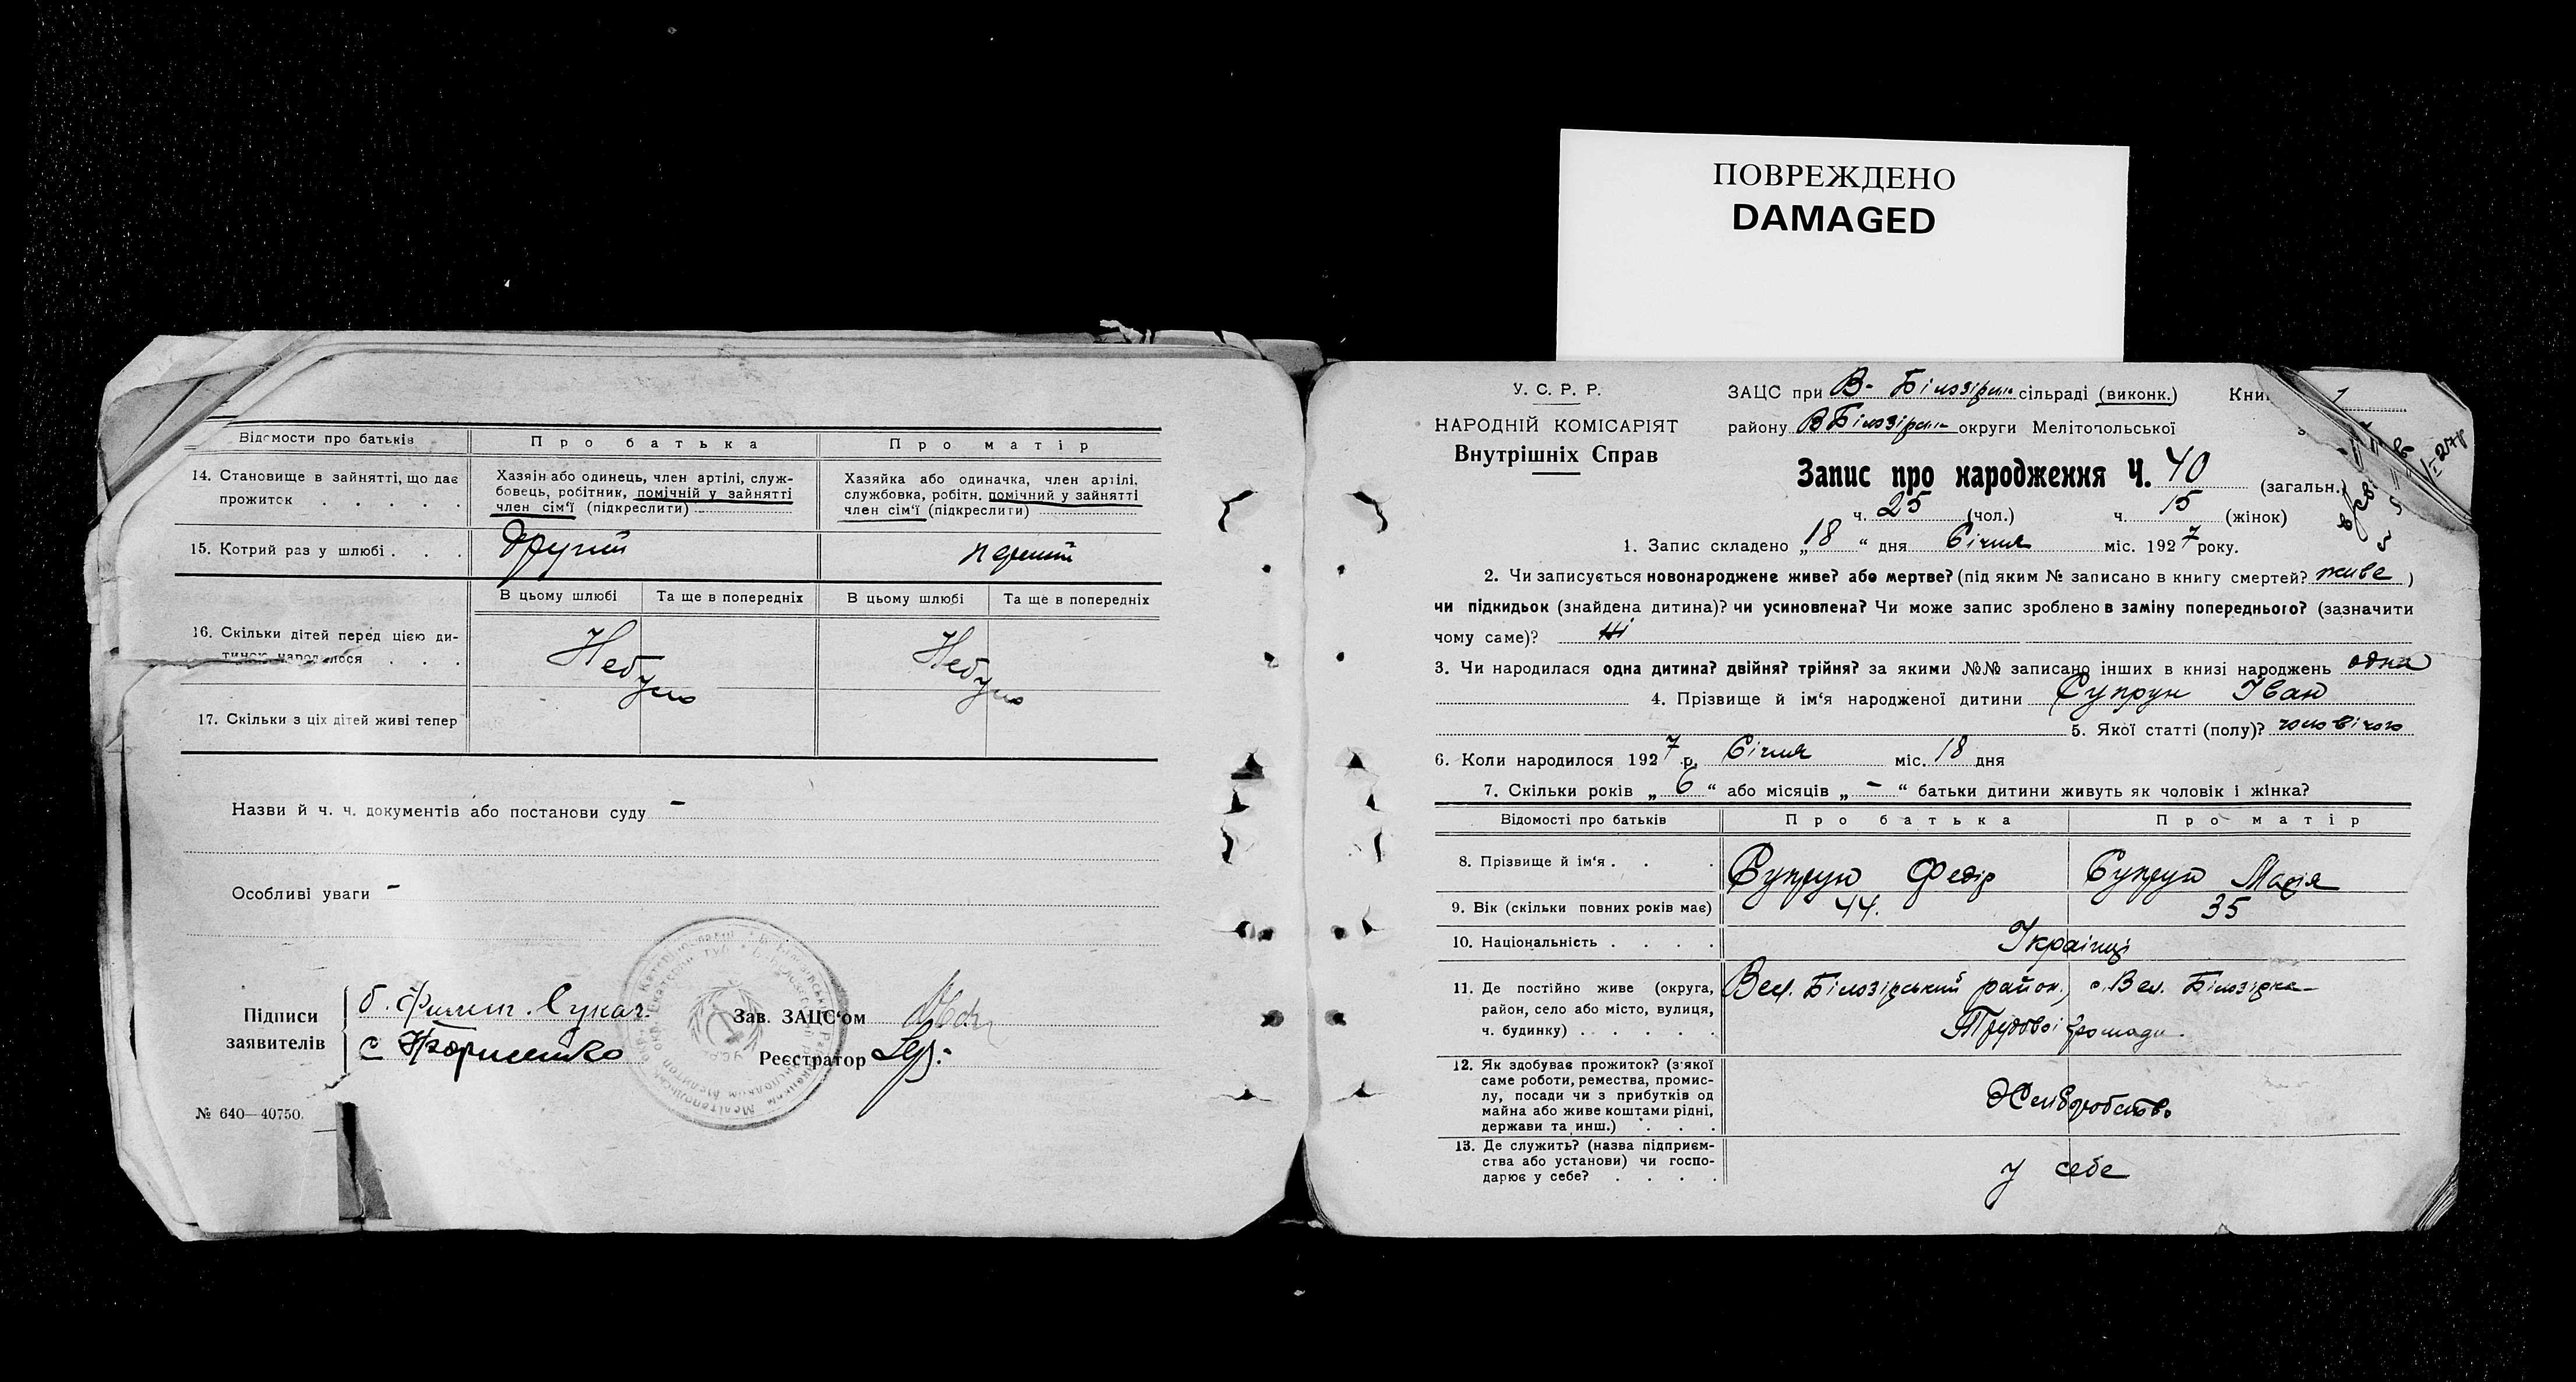 ПОВРЕЖДЕНО
DAMAGED
Відомости про батьків
Про батька
Про матір
14. Становище в зайнятті, що дає
прожиток . . . . .
Хазяїн або одинець, член артілі, служ-
бовець, робітник, помічній у зайнятті
член сім‘ї (підкреслити)
Хазяйка або одиначка, член артілі,
службовка, робітн. помічний у зайнятті
член сім‘ї (підкреслити)
15. Котрий раз у шлюбі . . .
Другий
перший
В цьому шлюбі
Та ще в попередніх
В цьому шлюбі
Та ще в попередніх
16. Скільки дітей перед цією ди-
тиною народилося . . .
Небуло
Небуло
17. Скільки з ціх дітей живі тепер
Назви й ч. ч. документів або постанови суду –
Особливі уваги –
Підписи
заявителів
Зав. ЗАЦС‘ом
Реєстратор
№ 640—40750.
У. С. Р. Р.
НАРОДНІЙ КОМІСАРІЯТ
Внутрішніх Справ
ЗАЦС при В- Білозірск сільраді (виконк.) 1
району ВБілозірск округи Мелітопольської
Запис про народження Ч. 40 (загальн.)
ч. 25 (чол.) ч. 15 (жінок)
1. Запис складено „18“ дня Січня міс. 1927 року.
2. Чи записується новонароджене живе? або мертве? (під яким № записано в книгу смертей? живе )
чи підкидьок (знайдена дитина)? чи усиновлена? Чи може запис зроблено в заміну попереднього? (зазначити
чому саме)? Ні
3. Чи народилася одна дитина? двійня? трійня? за якими №№ записано інших в книзі народжень одна
4. Прізвище й ім‘я народженої дитини Супрун Іван
5. Якої статті (полу)? чоловічого
6. Коли народилося 1927 р. Січня міс. 18 дня
7. Скільки років „6“ або місяців „–“ батьки дитини живуть як чоловік і жінка?
Відомості про батьків
Про батька
Про матір
8. Прізвище й ім‘я . . .
Супрун Федір
Супрун Марія
9. Вік (скільки повних років має)
44.
35
10. Національність . . . .
Українці
11. Де постійно живе (округа,
район, село або місто, вулиця,
ч. будинку) . . . . .
Вел. Білозірський район, с. Вел. Білозірка
Трудової громади.
12. Як здобуває прожиток? (з‘якої
саме роботи, ремества, промис-
лу, посади чи з прибутків од
майна або живе коштами рідні,
держави та инш.) . . .
Хліборобство
13. Де служить? (назва підприєм-
ства або установи) чи госпо-
дарює у себе? . . . .
у себе